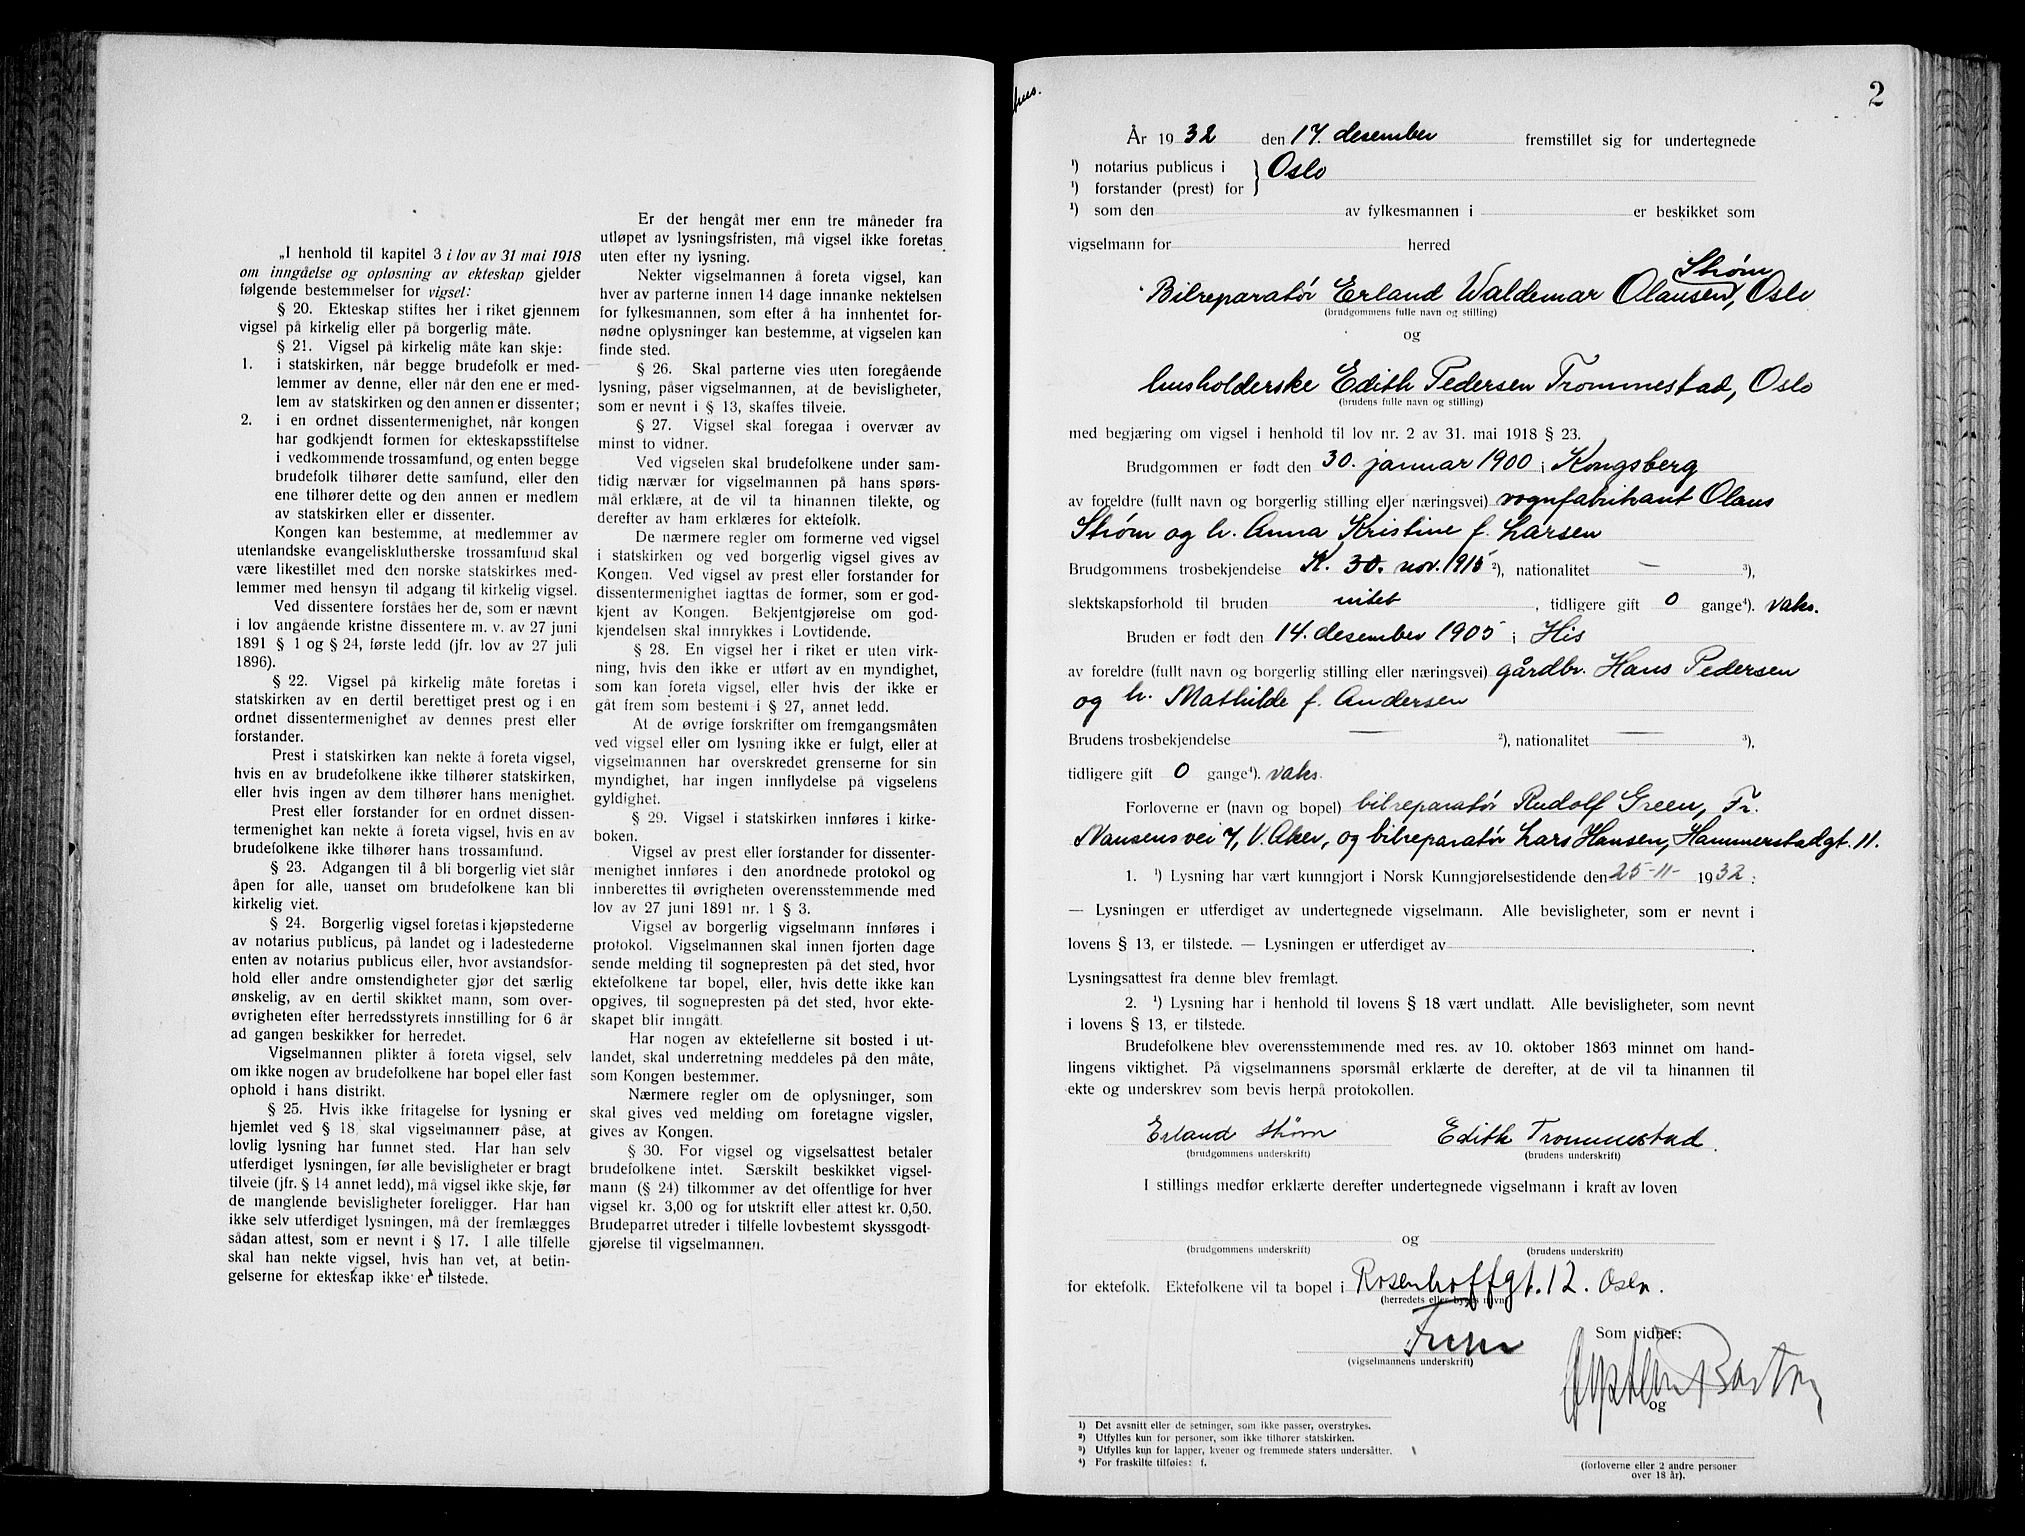 „I henhold til kapitel 3 i lov av 31 mai 1918
om inngåelse og opløsning av ekteskap gjelder
følgende bestemmelser for vigsel:
§ 20. Ekteskap stiftes her i riket gjennem
vigsel på kirkelig eller på borgerlig måte.
§ 21. Vigsel på kirkelig måte kan skje:
1. i statskirken, når begge brudefolk er med-
lemmer av denne, eller når den ene er med-
lem av statskirken og den annen er dissenter;
2. i en ordnet dissentermenighet, når kongen
har godkjendt formen for ekteskapsstiftelse
i vedkommende trossamfund, og enten begge
brudefolk tilhører dette samfund, eller den
ene tilhører dette og den annen er medlem
av statskirken eller er dissenter.
Kongen kan bestemme, at medlemmer av
utenlandske evangeliskluthersk trossamfund skal
være likestillet med den norske statskirkes med-
lemmer med hensyn til adgang til kirkelig vigsel.
Ved dissentere forståes her de, som er nævnt
i lov angående kristne dissentere m. v. av 27 juni
1891 § 1 og § 24, første ledd (jfr. lov av 27 juli
1896).
§ 22. Vigsel på kirkelig måte foretas i
statskirken av en dertil berettiget prest og i en
ordnet dissentermenighet av dennes prest eller
forstander.
Prest i statskirken kan nekte å foreta vigsel,
hvis en av brudefolkene ikke tilhører statskirken,
eller hvis ingen av dem tilhører hans menighet.
Prest eller forstander for en ordnet dissen-
termenighet kan nekte å foreta vigsel, hvis en av
brudefolkene ikke tilhører hans trossamfund.
§ 23. Adgangen til å bli borgerlig viet står
åpen for alle, uanset om brudefolkene kan bli
kirkelig viet.
§ 24. Borgerlig vigsel foretas i kjøpstederne
av notarius publicus, på landet og i ladestederne
enten av notarius publicus eller, hvor avstandsfor-
hold eller andre omstendigheter gjør det særlig
ønskelig, av en dertil skikket mann, som over-
øvrigheten efter herredsstyrets innstilling for 6 år
ad gangen beskikker for herredet.
Vigselmannen plikter å foreta vigsel, selv
om ikke nogen av brudefolkene har bopel eller fast
ophold i hans distrikt.
§ 25. Hvis ikke fritagelse for lysning er
hjemlet ved § 18, skal vigselmannen påse, at
lovlig lysning har funnet sted. Har han selv
utferdiget lysningen, før alle bevisligheter er bragt
tilveie (jfr. § 14 annet ledd), må vigsel ikke skje, før
de manglende bevisligheter foreligger. Har han
ikke selv utferdiget lysningen, må der fremlægges
sådan attest, som er nevnt i § 17. I alle tilfelle
skal han nekte vigsel, hvis han vet, at betin-
gelserne for ekteskap ikke er tilstede.
Er der hengåt mer enn tre måneder fra
utløpet av lysningsfristen, må vigsel ikke foretas
uten efter ny lysning.
Nekter vigselmannen å foreta vigsel, kan
hver av parterne innen 14 dage innanke nektelsen
for fylkesmannen, som efter å ha innhentet for-
nødne oplysninger kan bestemme, at vigselen kan
finde sted.
§ 26. Skal parterne vies uten foregående
lysning, påser vigselmannen, at de bevisligheter,
som er nevnt i § 13, skaffes tilveie.
§ 27. Vigsel skal foregaa i overvær av
minst to vidner.
Ved vigselen skal brudefolkene under sam-
tidig nærvær for vigselmannen på hans spørs-
mål erklære, at de vil ta hinannen tilekte, og
derefter av ham erklæres for ektefolk.
De nærmere regler om formerne ved vigsel
i statskirken og ved borgerlig vigsel gives av
Kongen. Ved vigsel av prest eller forstander for
dissentermenighet iagttas de former, som er god-
kjent av Kongen. Bekjentgjørelse om god-
kjendelsen skal innrykkes i Lovtidende.
§ 28. En vigsel her i riket er uten virk-
ning, hvis den ikke er utført av en myndighet,
som kan foreta vigsel, eller hvis der ikke er
gåt frem som bestemt i § 27, annet ledd.
At de øvrige forskrifter om fremgangsmåten
ved vigsel eller om lysning ikke er fulgt, eller at
vigselmannen har overskredet grenserne for sin
myndighet, har ingen innflydelse på vigselens
gyldighet.
§ 29. Vigsel i statskirken innføres i kirke-
boken.
Vigsel av prest eller forstander for dissenter-
menighet innføres i den anordnede protokol og
innberettes til øvrigheten overensstemmende med
lov av 27 juni 1891 nr. 1 § 3.
Vigsel av borgerlig vigselmann innføres i
protokol. Vigselmannen skal innen fjorten dage
sende melding til sognepresten på det sted, hvor
ektefolkene tar bopel, eller, hvis dette ikke kan
opgives, til sognepresten på det sted, hvor ekte-
skapet blir inngått.
Har nogen av ektefellerne sit bosted i ut-
landet, skal underretning meddeles på den måte,
som Kongen bestemmer.
Nærmere regler om de oplysninger, som
skal gives ved melding om foretagne vigsler,
gives av Kongen.
§ 30. For vigsel og vigselsattest betaler
brudefolkene intet. Særskilt beskikket vigsel-
mann (§ 24) tilkommer av det offentlige for hver
vigsel kr. 3,00 og for utskrift eller attest kr. 0,50.
Brudeparret utreder i tilfelle lovbestemt skyssgodt-
gjørelse til vigselmannen.
2
hus.
År 1932 den 17. desember fremstillet sig for undertegnede
¹) notarius publicus i } Oslo
¹) forstander (prest) for
¹) som den av fylkesmannen i er beskikket som
vigselmann for herred
Strøm
Bilreparatør Erland Waldemar Olausen, Oslo
(brudgommens fulle navn og stilling)
og
husholderske Edith Pedersen Trommestad, Oslo
(brudens fulle navn og stilling)
med begjæring om vigsel i henhold til lov nr. 2 av 31. mai 1918 § 23.
Brudgommen er født den 30. januar 1900 i Kongsberg
av foreldre (fullt navn og borgerlig stilling eller næringsvei) vognfabrikant Olaus
Strøm og h. Anna Kristine f. Larsen
Brudgommens trosbekjendelse K. 30. nov. 1915 ²), nationalitet — ³),
slektskapsforhold til bruden intet, tidligere gift 0 gange⁴). vaks.
Bruden er født den 14. desember 1905 i His
av foreldre (fullt navn og borgerlig stilling eller næringsvei) gårdbr. Hans Pedersen
og h. Mathilde f. Andersen
Brudens trosbekjendelse — ²), nationalitet — ³),
tidligere gift 0 gange⁴). vaks.
Forloverne er (navn og bopel) bilreparatør Rudolf Green, Fr.
Nansens vei 7, V. Aker, og bilreparatør Lars Hansen, Hammerstadgt. 11.
1. ¹) Lysning har vært kunngjort i Norsk Kunngjørelsestidende den 25-11- 1932:
— Lysningen er utferdiget av undertegnede vigselmann. Alle bevisligheter, som er nevnt i
lovens § 13, er tilstede. — Lysningen er utferdiget av .
Lysningsattest fra denne blev fremlagt.
2. ¹) Lysning har i henhold til lovens § 18 vært undlatt. Alle bevisligheter, som nevnt
i lovens § 13, er tilstede.
Brudefolkene blev overensstemmende med res. av 10. oktober 1863 minnet om hand-
lingens viktighet. På vigselmannens spørsmål erklærte de derefter, at de vil ta hinannen til
ekte og underskrev som bevis herpå protokollen.
Erland Strøm Edith Trommestad.
(brudgommens underskrift) (brudens underskrift)
I stillings medfør erklærte derefter undertegnede vigselmann i kraft av loven
og
(brudgommens underskrift) (brudens underskrift)
for ektefolk. Ektefolkene vil ta bopel i Rosenhoffgt. 12. Oslo.
(herredets eller byens navn)
Som vidner:
(vigselmannens underskrift)
og
¹) Det avsnitt eller de setninger, som ikke passer, overstrykes.
²) Utfylles kun for personer, som ikke tilhører statskirken.
³) Utfylles kun for lapper, kvener og fremmede staters undersåtter.
⁴) For fraskilte tilføies: f.
(forloverne eller 2 andre personer
over 18 år).